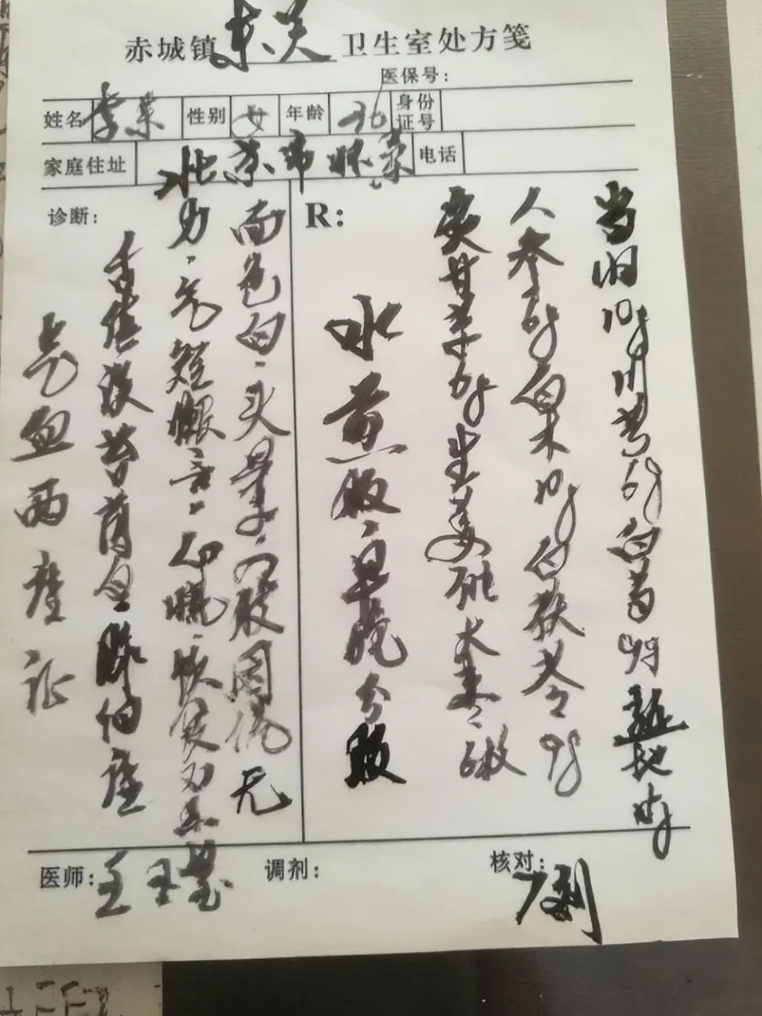 赤城镇东关卫生室处方笺
医保号：
姓名 李某 性别 女 年龄 36 身份证号
家庭住址 北京市怀柔 电话
诊断：
面色白、头晕、四肢困倦无
力、气短懒言、心慌、
舌质淡苔薄白、脉细虚
气血两虚证
R：
当归10g川芎6g白芍9g熟地
人参6g白术10g白茯苓9g
炙甘草6g生姜3片大枣
水煎服、早晚分服
医师：王 调剂： 核对：
7剂